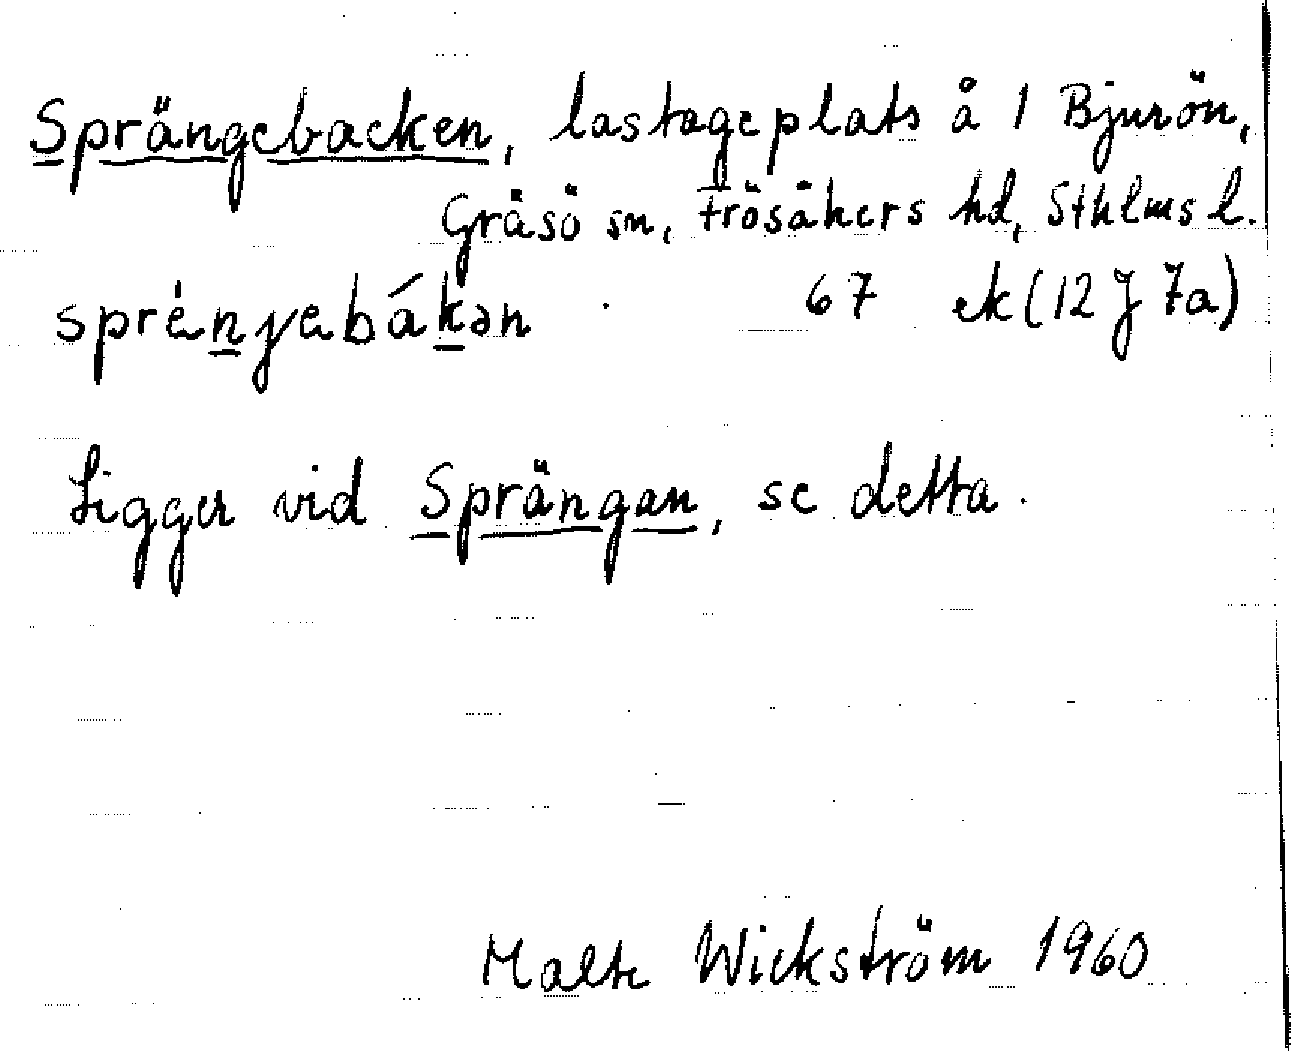 Sprängebacken, lastageplats å 1 Bjurön,
Gräsö sn, Frösåkers hd, Sthlms l.
sprèn̲γebák̲ən . 67 ek (12 J 7a)
Ligger vid Sprängan, se detta.
Malte Wickström 1960